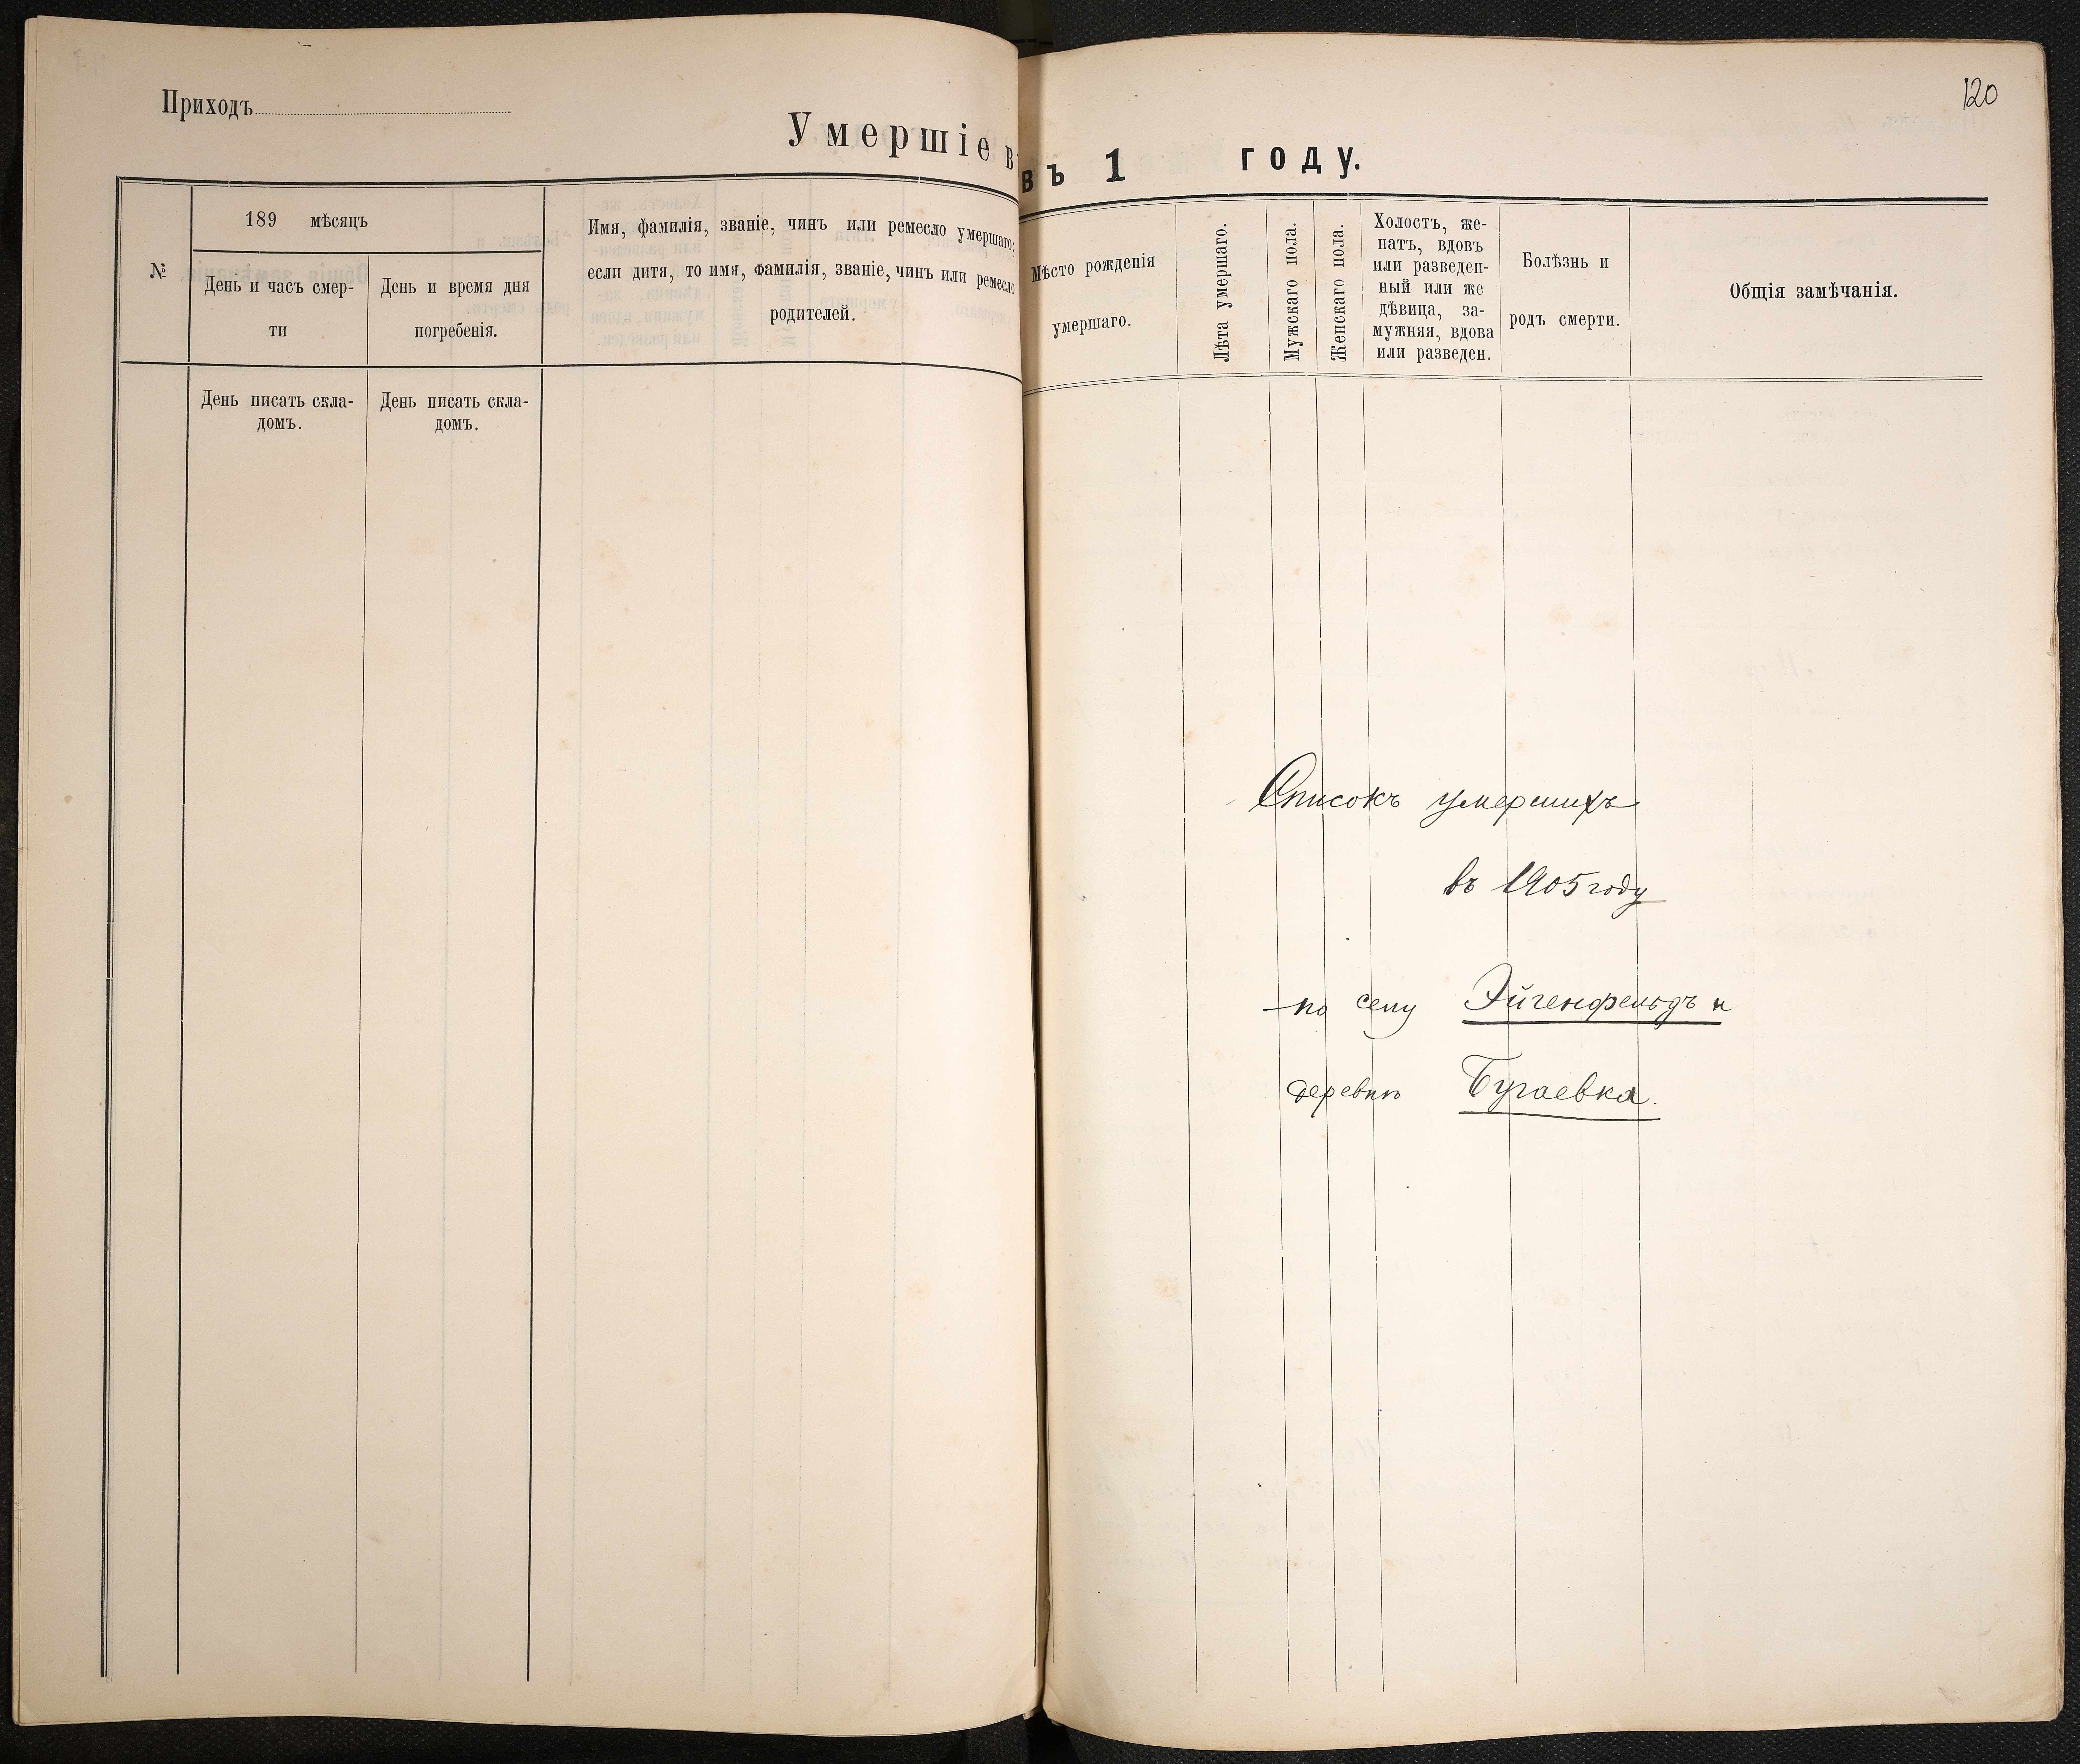 Приходъ
Умершіе въ
189 мѣсяцъ
№
День и часъ смер-
ти
День и время дня
погребенія.
Имя, фамилія, званіе, чинъ или ремесло умершаго;
если дитя, то имя, фамилія, званіе, чинъ или ремесло
родителей.
День писать скла-
домъ.
День писать скла-
домъ.
120
въ 1 году.
Мѣсто рожденія
умершаго.
Лѣта умершаго.
Мужскаго пола.
Женскаго пола.
Холостъ, же-
натъ, вдовъ
или разведен-
ный или же
дѣвица, за-
мужняя, вдова
или разведен.
Болѣзнь и
родъ смерти.
Общія замѣчанія.
Списокъ умершихъ
въ 1905 году
по селу Эйгенфельдъ и
деревни Бугаевка.